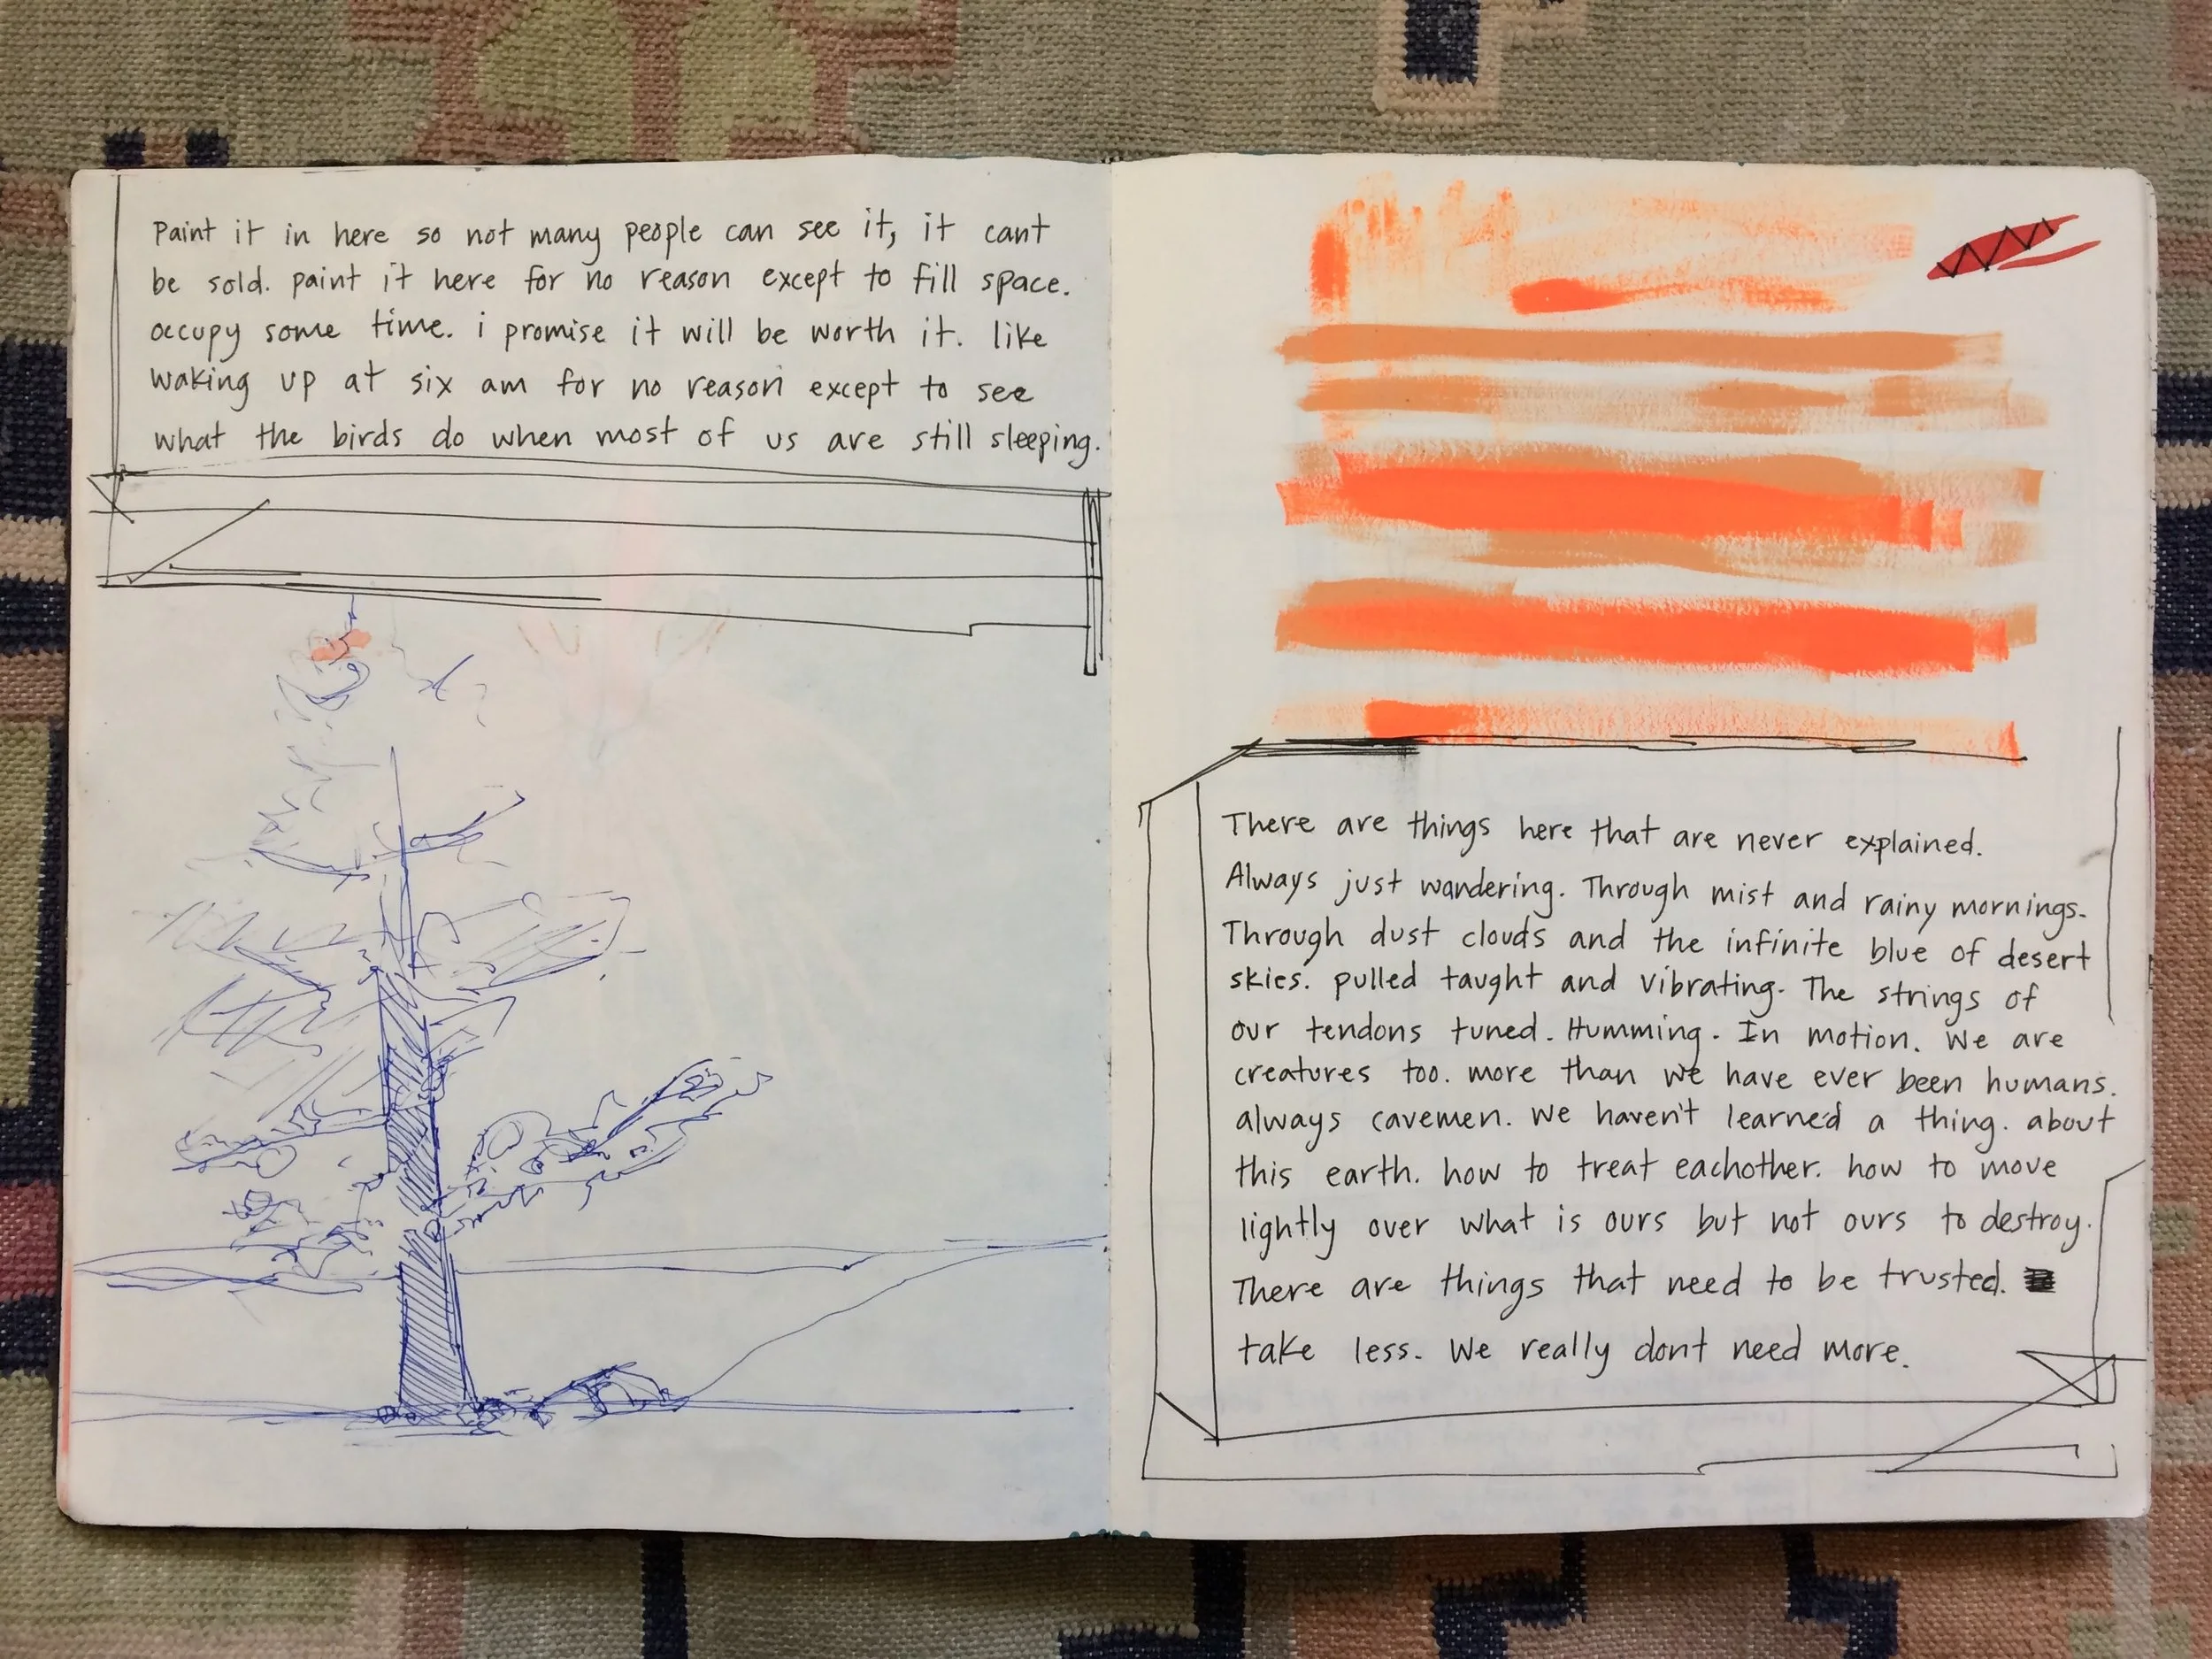 Paint it in here so not many people can see it, it cant
be sold. paint it here for no reason except to fill space.
occupy some time. i promise it will be worth it. like
waking up at six am for no reason except to see
what the birds do when most of us are still sleeping.
There are things here that are never explained.
Always just wandering. Through mist and rainy mornings.
Through dust clouds and the infinite blue of desert
skies. pulled taught and vibrating. The strings of
our tendons tuned. Humming. In motion. We are
creatures too. more than we have ever been humans.
always cavemen. We haven't learned a thing. about
this earth. how to treat eachother. how to move
lightly over what is ours but not ours to destroy.
There are things that need to be trusted.
take less. We really dont need more.